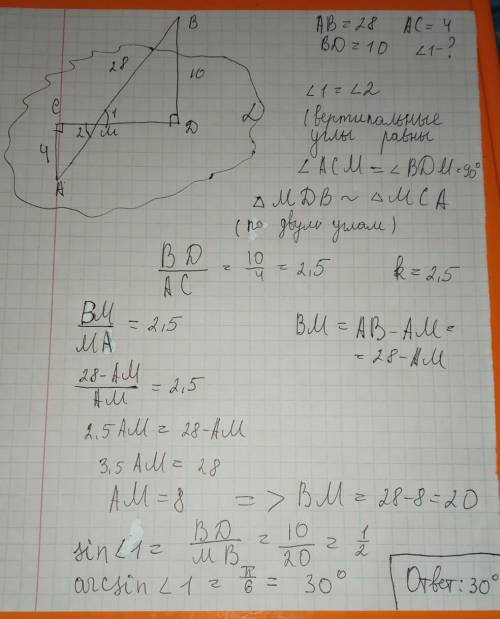 AB = 28 AC = 4
BD = 10 ∠1-?
B
28
10
C
1
2
M
D
α
4
A
∠1 = ∠2
(вертикальные
углы равны
∠ACM = ∠BDM = 90°
△MDB ~ △MCA
(по двум углам)
BD/AC = 10/4 = 2,5 k = 2,5
BM/MA = 2,5 BM = AB - AM =
= 28 - AM
28-AM/AM = 2,5
2,5 AM = 28 - AM
3,5 AM = 28
AM = 8 => BM = 28 - 8 = 20
sin∠1 = BD/MB = 10/20 = 1/2
arcsin ∠1 = π/6 = 30°
Ответ: 30°